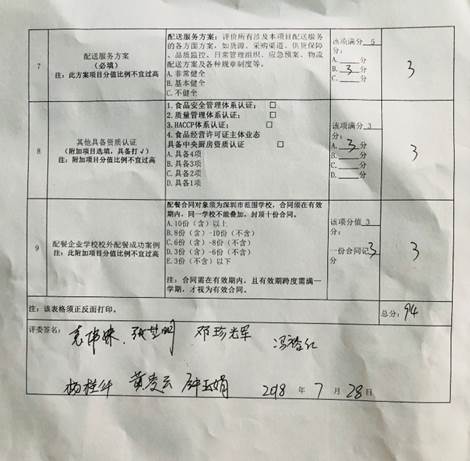 7
配送服务方案
（必填）
注：此方案项目分值比例不宜过高
配送服务方案：评价所有涉及本项目配送服务
的各方面方案，如货源、采购渠道、供货保障
、品质监控、日常管理组织、应急预案、物流
配送方案及各种规章制度等。
A.非常健全
B.基本健全
C.不健全
该项满分 5
分：
A.___分
B. 3 分
C.___分
3
8
其他具备资质认证
（附加项目选填，具备打√）
注：附加项目分值比例不宜过高
1.食品安全管理体系认证：□
2.质量管理体系认证：□
3.HACCP体系认证：□
4.食品经营许可证主体业态
具备中央厨房资质认证 □
A.具备4项
B.具备3项
C.具备2项
D.具备1项
该项满分 3
分：
A. 3 分
B.___分
C.___分
D.___分
3
9
配餐企业学校校外配餐成功案例
注：此附加项目分值比例不宜过高
配餐合同对象须为深圳市范围学校，合同须在有效
期内，同一学校不能叠加，封顶十份合同。
A.10份（含）以上
B.8份（含）-10份（不含）
C.6份（含）-8份（不含）
D.3份（含）-6份（不含）
E.3份（不含）以下
注：合同需在有效期内，且有效期跨度需满一
学期，才视为有效合同。
该项分值 3
分：
一份合同记 3
分
3
注：该表格须正反面打印。
总分：94
评委签名：
邓珍光军
冯裕仁
杨桂件 黄凌云 钟玉娟 2018 年 7 月 28 日